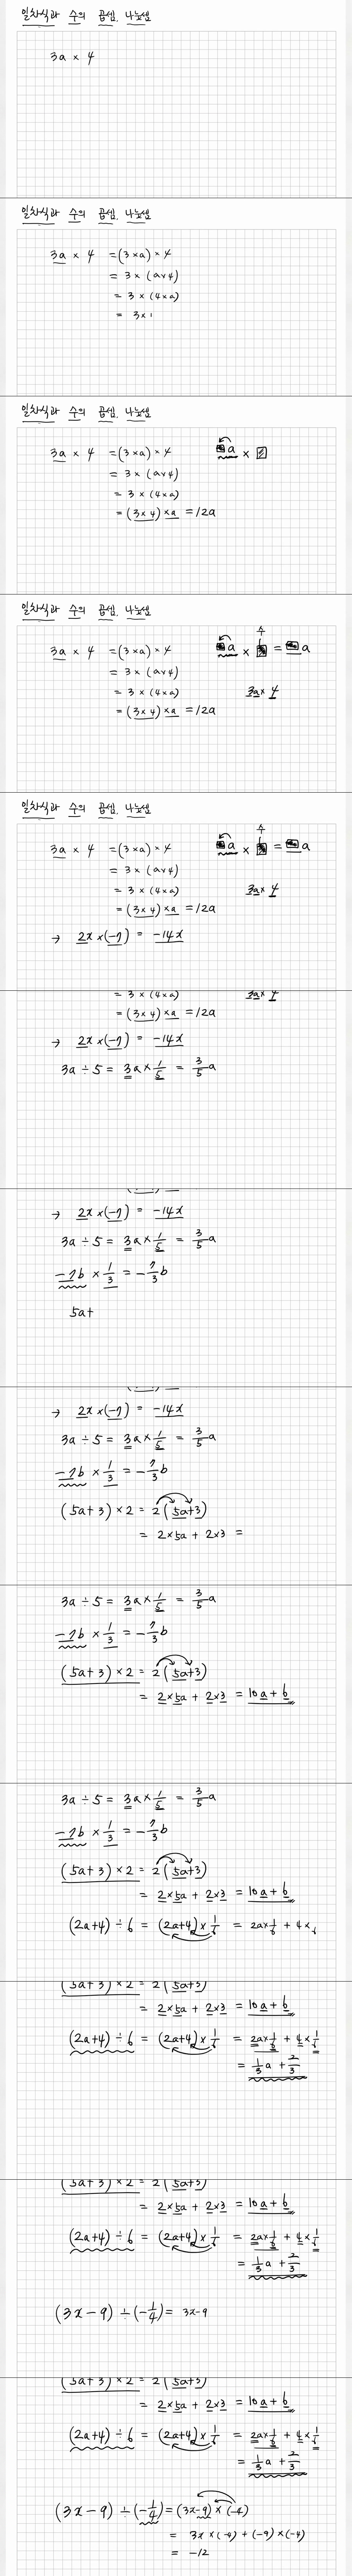 일차식과 수의 곱셈, 나눗셈
3a × 4
일차식과 수의 곱셈, 나눗셈
3a × 4 = (3×a) × 4
= 3 × (a×4)
= 3 × (4×a)
= 3×
일차식과 수의 곱셈, 나눗셈
3a × 4 = (3×a) × 4 a ×
= 3 × (a×4)
= 3 × (4×a)
= (3×4) × a = 12a
일차식과 수의 곱셈, 나눗셈
수
3a × 4 = (3×a) × 4 a × = a
= 3 × (a×4)
= 3 × (4×a) 3a × 4
= (3×4) × a = 12a
일차식과 수의 곱셈, 나눗셈
수
3a × 4 = (3×a) × 4 a × = a
= 3 × (a×4)
= 3 × (4×a) 3a × 4
= (3×4) × a = 12a
→ 2x × (-7) = -14x
= 3 × (4×a) 3a × 4
= (3×4) × a = 12a
→ 2x × (-7) = -14x
3a ÷ 5 = 3a × 1/5 = 3/5 a
→ 2x × (-7) = -14x
3a ÷ 5 = 3a × 1/5 = 3/5 a
-7b × 1/3 = -7/3 b
5a+
→ 2x × (-7) = -14x
3a ÷ 5 = 3a × 1/5 = 3/5 a
-7b × 1/3 = -7/3 b
(5a+3) × 2 = 2(5a+3)
= 2×5a + 2×3 =
3a ÷ 5 = 3a × 1/5 = 3/5 a
-7b × 1/3 = -7/3 b
(5a+3) × 2 = 2(5a+3)
= 2×5a + 2×3 = 10a + 6
3a ÷ 5 = 3a × 1/5 = 3/5 a
-7b × 1/3 = -7/3 b
(5a+3) × 2 = 2(5a+3)
= 2×5a + 2×3 = 10a + 6
(2a+4) ÷ 6 = (2a+4) × 1/6 = 2a×1/6 + 4×
(5a+3) × 2 = 2(5a+3)
= 2×5a + 2×3 = 10a + 6
(2a+4) ÷ 6 = (2a+4) × 1/6 = 2a×1/6 + 4×1/6
= 1/3 a + 2/3
(5a+3) × 2 = 2(5a+3)
= 2×5a + 2×3 = 10a + 6
(2a+4) ÷ 6 = (2a+4) × 1/6 = 2a×1/6 + 4×1/6
= 1/3 a + 2/3
(3x-9) ÷ (-1/4) = 3x-9
(5a+3) × 2 = 2(5a+3)
= 2×5a + 2×3 = 10a + 6
(2a+4) ÷ 6 = (2a+4) × 1/6 = 2a×1/6 + 4×1/6
= 1/3 a + 2/3
(3x-9) ÷ (-1/4) = (3x-9) × (-4)
= 3x × (-4) + (-9) × (-4)
= -12